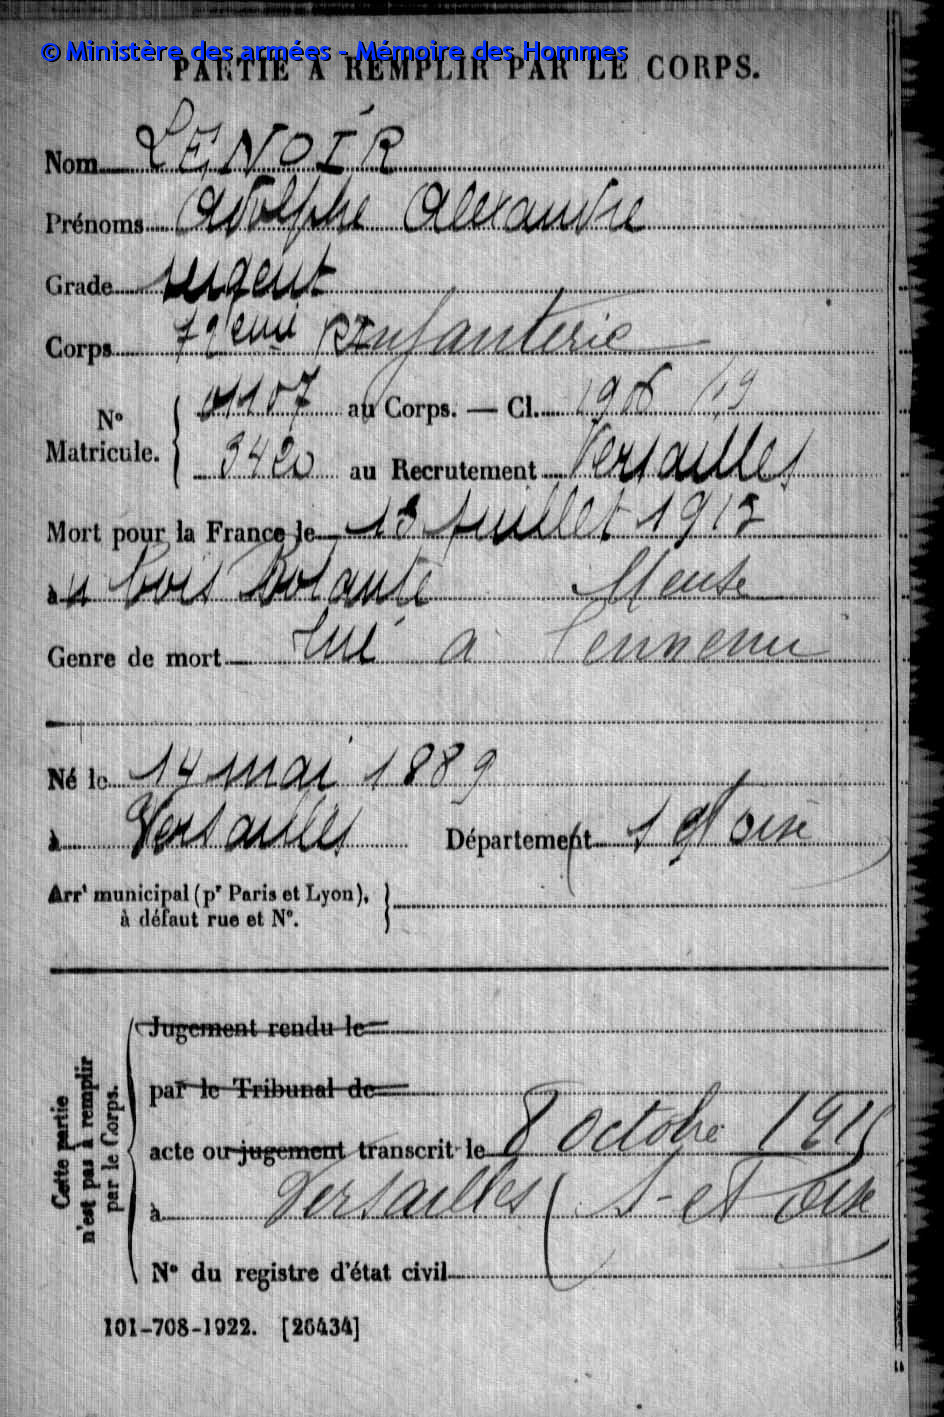 © Ministère des armées - Mémoire des Hommes
PARTIE À REMPLIR PAR LE CORPS.
Nom LENOIR
Prénoms Adolphe Alexandre
Grade sergent
Corps 72eme Infanterie
N° Matricule. 01107 au Corps. — Cl. 1906
3420 au Recrutement Versailles
Mort pour la France le 13 Juillet 1915
à Bois Bolante Meuse
Genre de mort Tué à l'ennemi
Né le 14 mai 1889
à Versailles Département S et Oise
Arrt municipal (pr Paris et Lyon),
à défaut rue et N°.
Cette partie
n'est pas à remplir
par le Corps.
Jugement rendu le
par le Tribunal de
acte ou jugement transcrit le 8 Octobre 1915
à Versailles (S-et Oise
N° du registre d'état civil
101-708-1922. [26434]